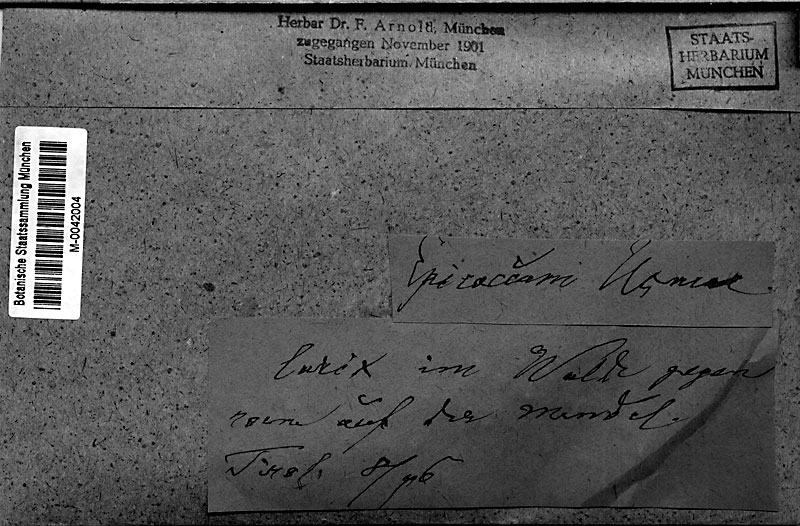 Herbar Dr. F. Arnold, München
zugegangen November 1901
Staatsherbarium München
STAATS-
HERBARIUM
MÜNCHEN
Botanische Staatssammlung München
M-0042004
Usneae
larix im Walde gegen
auf der Mendel.
Tirol. 8/96